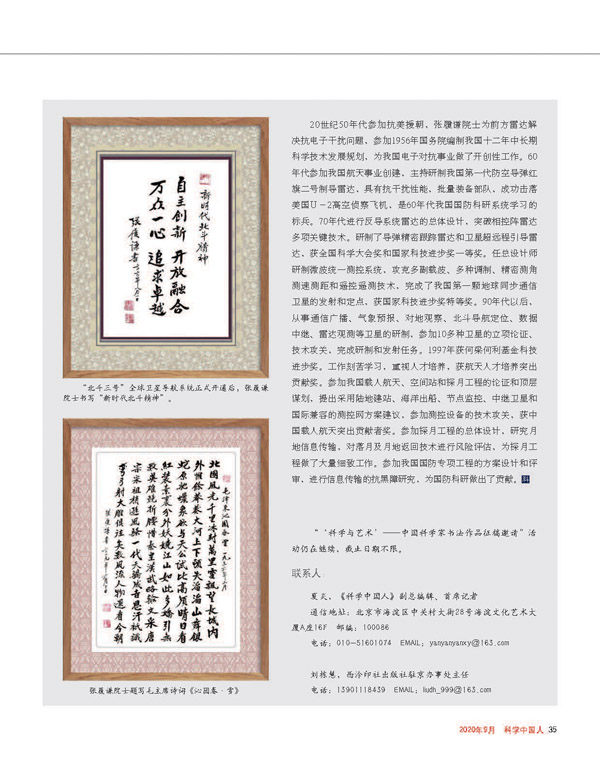 新时代北斗精神
自主创新 开放融合
万众一心 追求卓越
“北斗三号”全球卫星导航系统正式开通后，张履谦
院士书写“新时代北斗精神”。
毛泽东沁园春 雪 一九三六年二月
北国风光千里冰封万里雪飘望长城内
外惟余莽莽大河上下顿失滔滔山舞银
蛇原驰蜡象欲与天公试比高须晴日看
红装素裹分外妖娆江山如此多娇引无
数英雄竞折腰惜秦皇汉武略输文采唐
宗宋祖稍逊风骚一代天骄成吉思汗只识
弯弓射大雕俱往矣数风流人物还看今朝
张履谦院士题写毛主席诗词《沁园春·雪》
20世纪50年代参加抗美援朝，张履谦院士为前方雷达解
决抗电子干扰问题，参加1956年国务院编制我国十二年中长期
科学技术发展规划，为我国电子对抗事业做了开创性工作。60
年代参加我国航天事业创建，主持研制我国第一代防空导弹红
旗二号制导雷达，具有抗干扰性能，批量装备部队，成功击落
美国U－2高空侦察飞机，是60年代我国国防科研系统学习的
标兵。70年代进行反导系统雷达的总体设计，突破相控阵雷达
多项关键技术。研制了导弹精密跟踪雷达和卫星超远程引导雷
达，获全国科学大会奖和国家科技进步奖一等奖。任总设计师
研制微波统一测控系统，攻克多副载波、多种调制、精密测角
测速测距和遥控遥测技术，完成了我国第一颗地球同步通信
卫星的发射和定点，获国家科技进步奖特等奖。90年代以后，
从事通信广播、气象预报、对地观察、北斗导航定位、数据
中继、雷达观测等卫星的研制，参加10多种卫星的立项论证、
技术攻关，完成研制和发射任务。1997年获何梁何利基金科技
进步奖。工作刻苦学习，重视人才培养，获航天人才培养突出
贡献奖。参加我国载人航天、空间站和探月工程的论证和顶层
谋划，提出采用陆地建站、海洋出船、节点监控、中继卫星和
国际兼容的测控网方案建议，参加测控设备的技术攻关，获中
国载人航天突出贡献者奖。参加探月工程的总体设计，研究月
地信息传输，对落月及月地返回技术进行风险评估，为探月工
程做了大量细致工作。参加我国国防专项工程的方案设计和评
审，进行信息传输的抗黑障研究，为国防科研做出了贡献。
“‘科学与艺术’——中国科学家书法作品征稿邀请”活
动仍在继续，截止日期不限。
联系人
夏天，《科学中国人》副总编辑、首席记者
通信地址：北京市海淀区中关村大街28号海淀文化艺术大
厦A座16F 邮编：100086
电话：010-51601074 EMAIL：yanyanyanxy@163.com
刘栋慧，西泠印社出版社驻京办事处主任
电话：13901118439 EMAIL：liudh_999@163.com
2020年9月 科学中国人 35